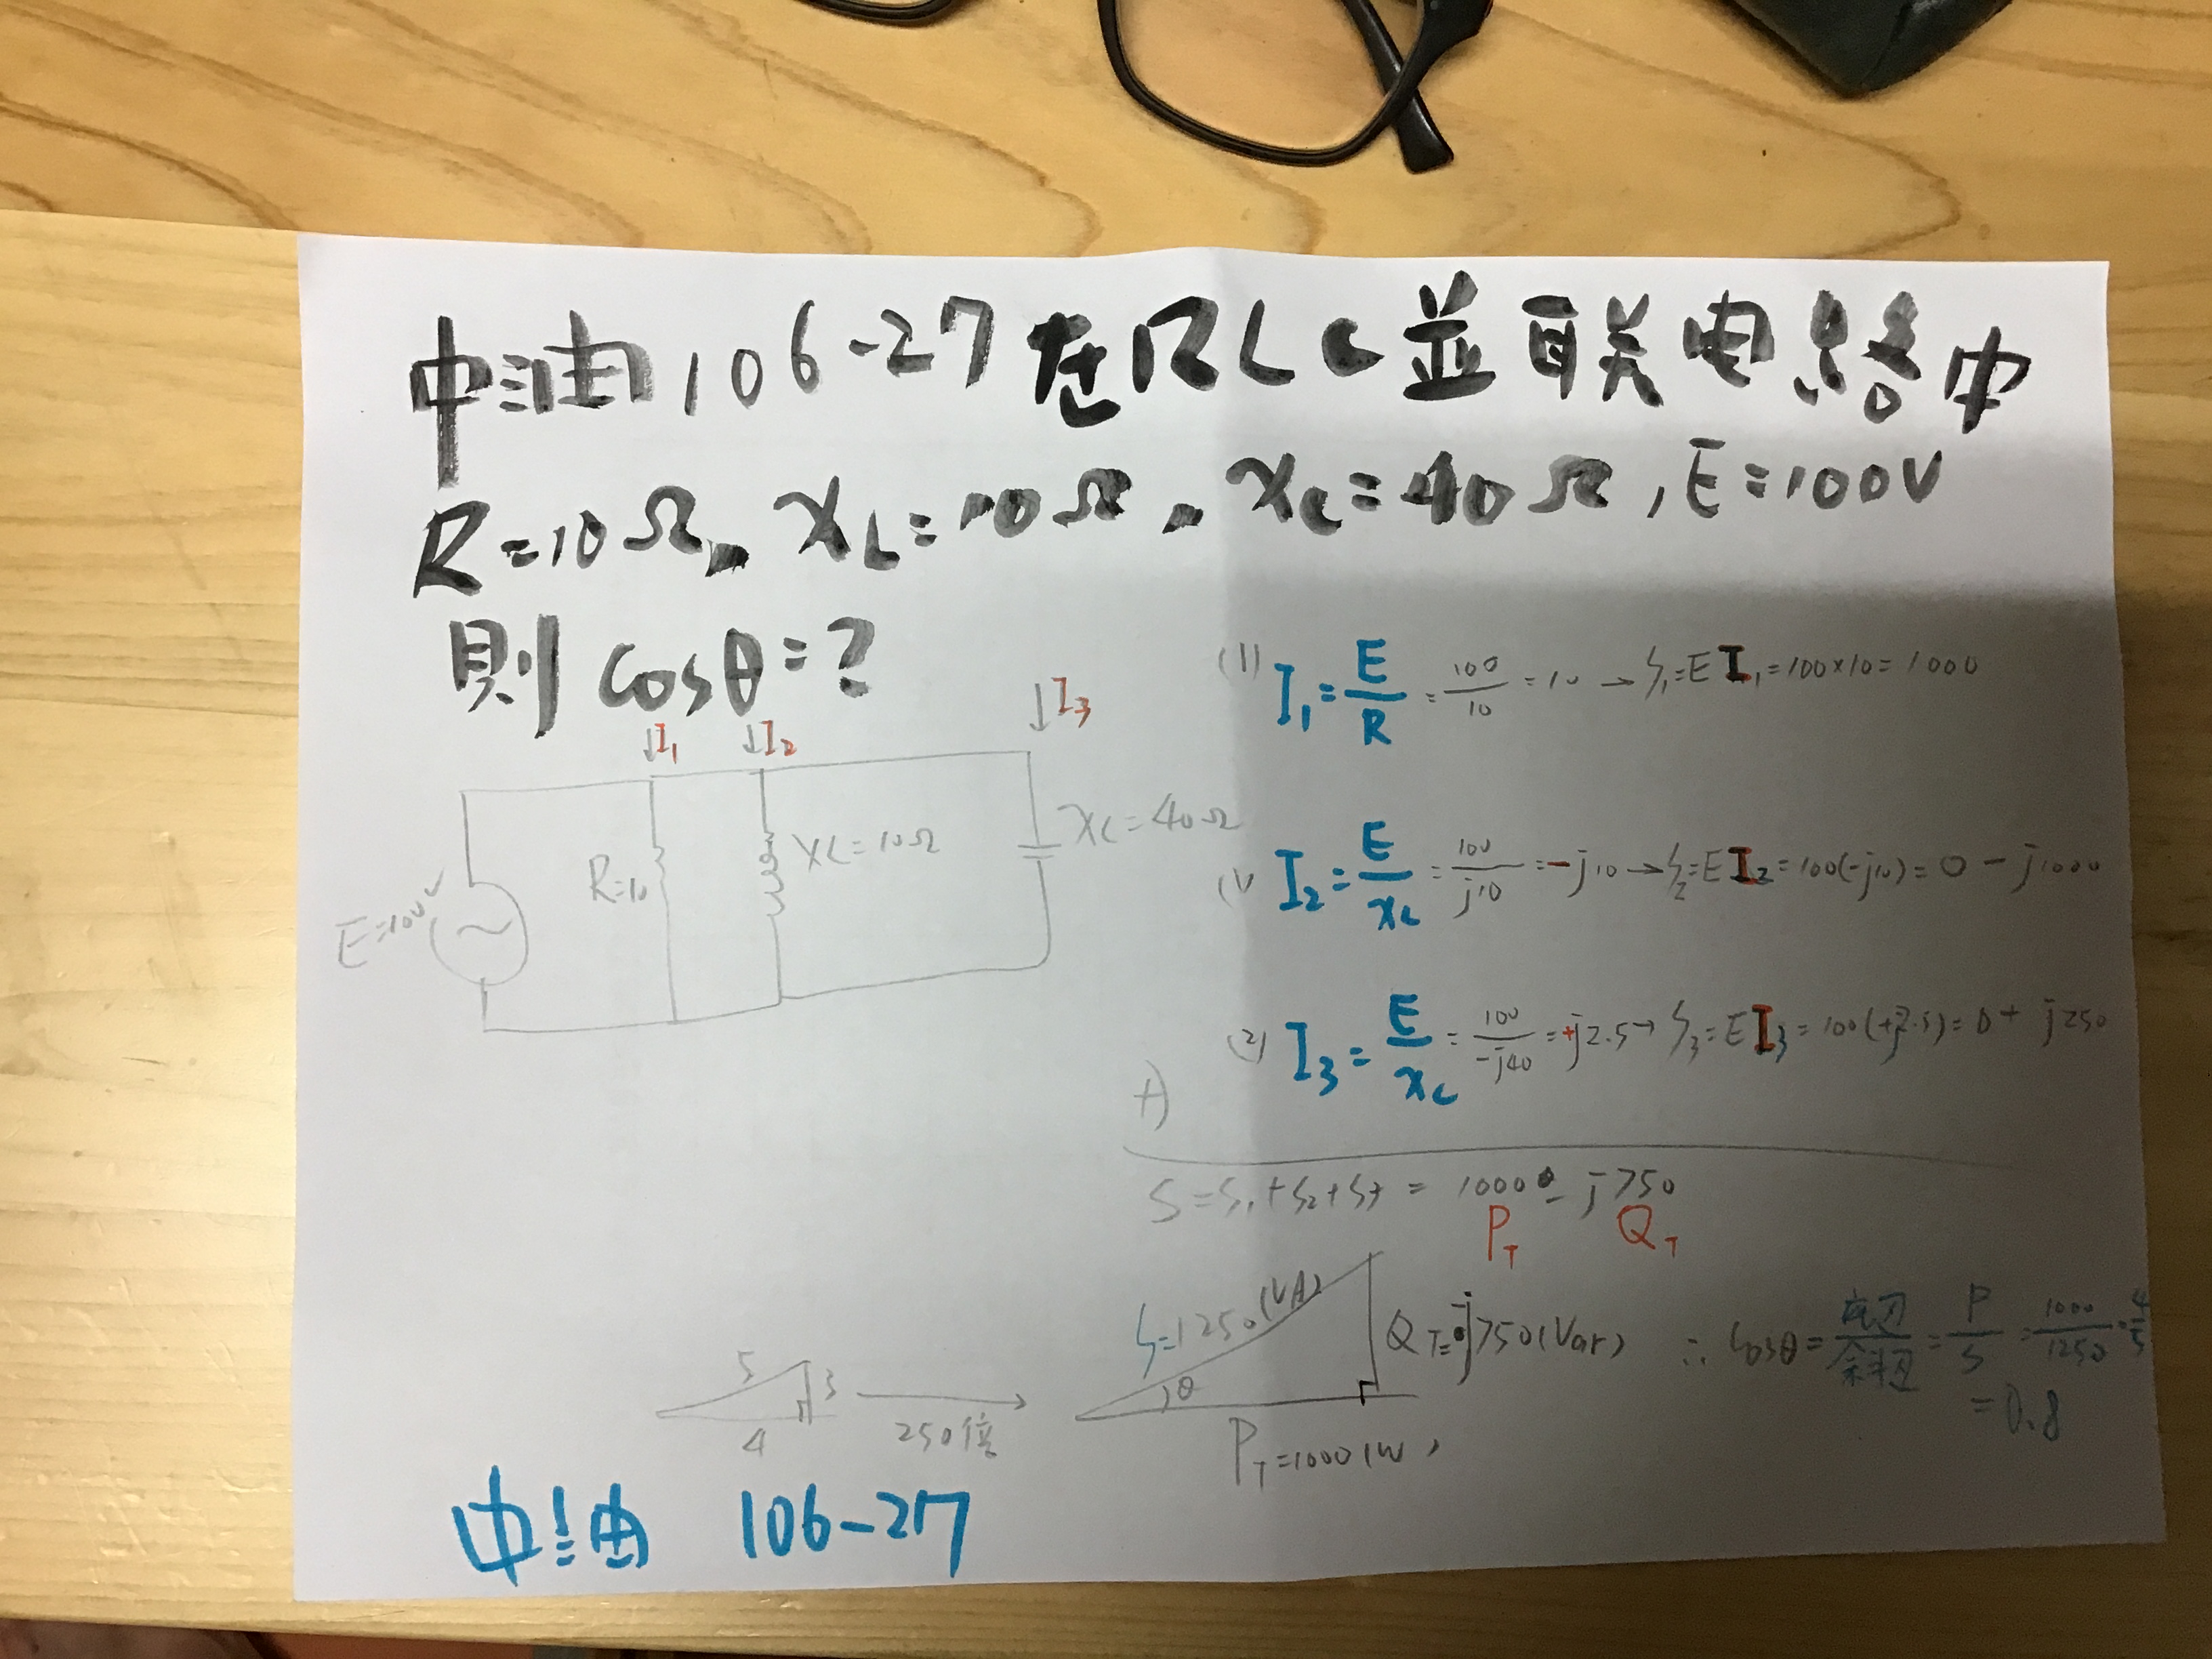 中油106-27在RLC並联电路中
R=10Ω、XL=10Ω、XC=40Ω,E=100V
則 cosθ=?
↓I1 ↓I2 ↓I3
E=100V
R=10
XL=10Ω
XC=40Ω
(1) I1=E/R=100/10=10→S1=EI1=100×10=1000
(1) I2=E/XL=100/j10=-j10→S2=EI2=100(-j10)=0-j1000
(2) I3=E/XC=100/-j40=+j2.5→S3=EI3=100(+j2.5)=0+j250
+)
S=S1+S2+S3=1000-j750
PT QT
5 3 4
250倍
S=1250(VA)
θ
QT=-j750(Var)
PT=1000(W)
∴cosθ=底边/斜边=P/S=1000/1250=4/5
=0.8
中油 106-27